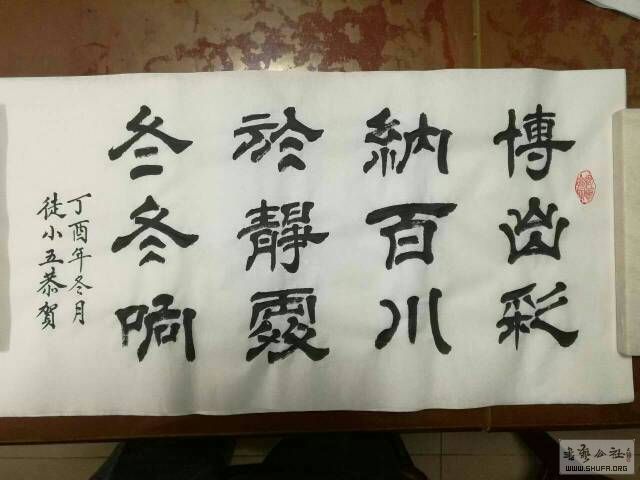 博出彩
納百川
於靜處
冬冬响
丁酉年冬月
徒小五恭賀
WWW.SHUFA.ORG